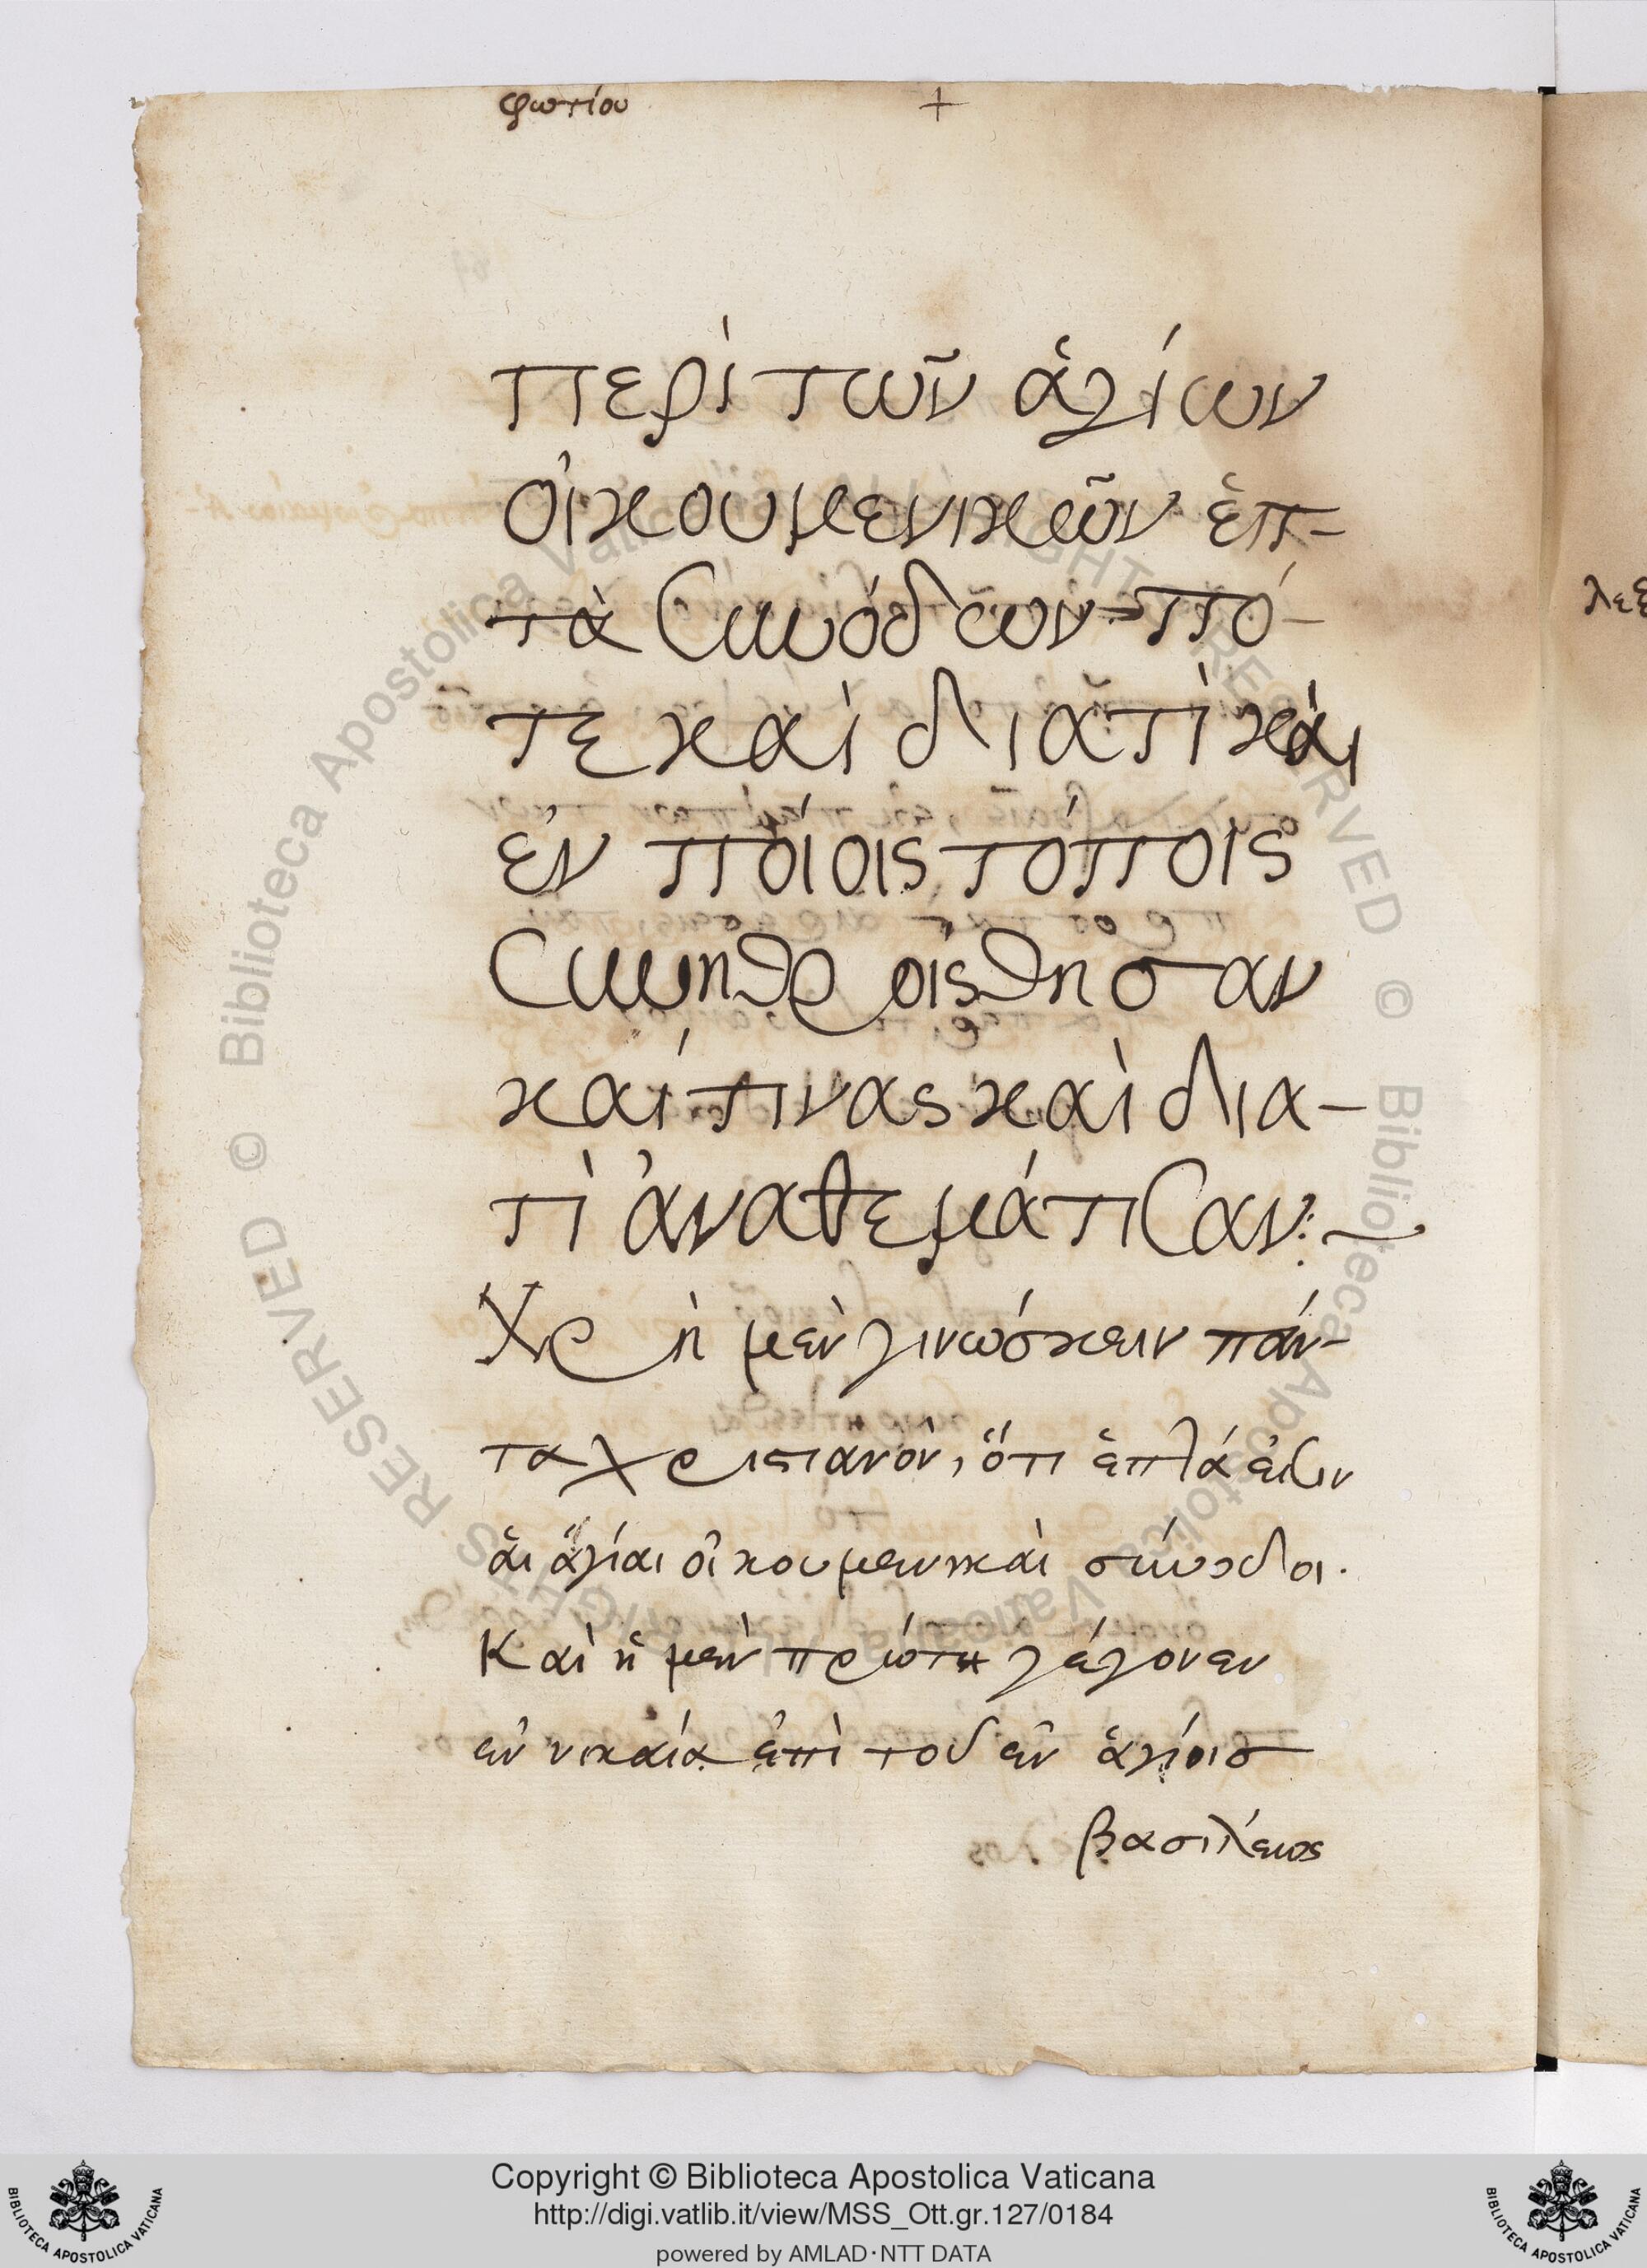 φωτίου +
περὶ τῶν ἁγίων
οἰκουμενικῶν ἑπ-
τὰ συνόδων πό-
τε καὶ διατὶ καὶ
ἐν ποίοις τόποις
συνηθροίσθησαν
καὶ τίνας καὶ δια-
τὶ ἀναθεμάτισαν:~
Χρὴ μὲν γινώσκειν πάν-
τα χριστιανὸν, ὅτι ἑπτά εἰσιν
ἁι ἅγίαι οἰκουμενικαὶ σύνοδοι.
Καὶ ἡ μὲν πρώτη γέγονεν
ἐν νικαία ἐπὶ τοῦ ἐν ἁγίοισ
βασιλέως
λεξ
Copyright © Biblioteca Apostolica Vaticana
http://digi.vatlib.it/view/MSS_Ott.gr.127/0184
powered by AMLAD·NTT DATA
BIBLIOTECA APOSTOLICA VATICANA
BIBLIOTECA APOSTOLICA VATICANA
© Biblioteca Apostolica Vaticana ALL RIGHTS RESERVED © Biblioteca Apostolica Vaticana ALL RIGHTS RESERVED